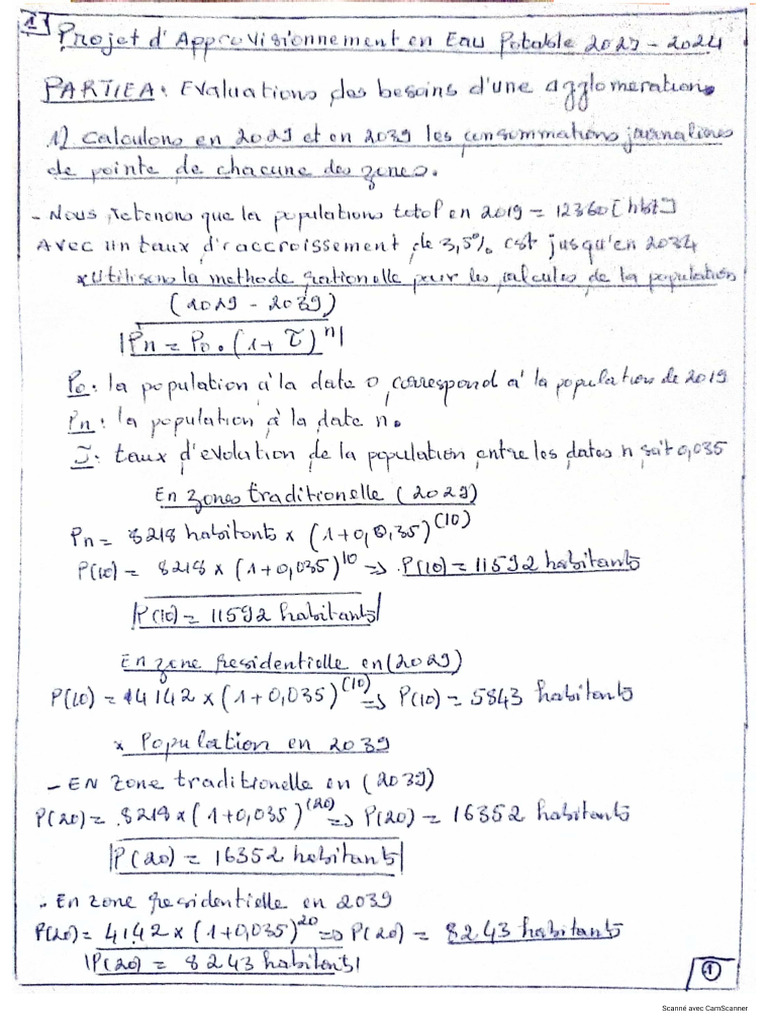 1
Projet d'Approvisionnement en Eau Potable 2023-2024
PARTIE A: Evaluations des besoins d'une agglomeration.
1) Calculons en 2029 et en 2039 les consommations journalières
de pointe de chacune des zones.
- Nous retenons que la populations total en 2019 = 12360 [hbt]
Avec un taux d'accroissement de 3,5% est jusqu'en 2034
* Utilisons la methode rationelle pour les calcules de la population
(2029 - 2039)
|Pn = Po . (1 + τ)^n|
Po : la population à la date 0, correspond à la population de 2019
Pn : la population à la date n.
τ : taux d'evolution de la population entre les dates n soit 0,035
En zones traditionelle (2029)
Pn = 8218 habitants x (1+0,0,35)^(10)
P(10) = 8218 x (1+0,035)^10 => P(10) = 11592 habitants
|P(10) = 11592 habitants|
En zone residentielle en (2029)
P(10) = 4142 x (1+0,035)^(10) => P(10) = 5843 habitants
* Population en 2039
- EN zone traditionelle en (2039)
P(20) = 8218 x (1+0,035)^(20) => P(20) = 16352 habitants
|P(20) = 16352 habitants|
- En zone residentielle en 2039
P(20) = 4142 x (1+0,035)^20 => P(20) = 8243 habitants
|P(20) = 8243 habitants|
1
Scanné avec CamScanner